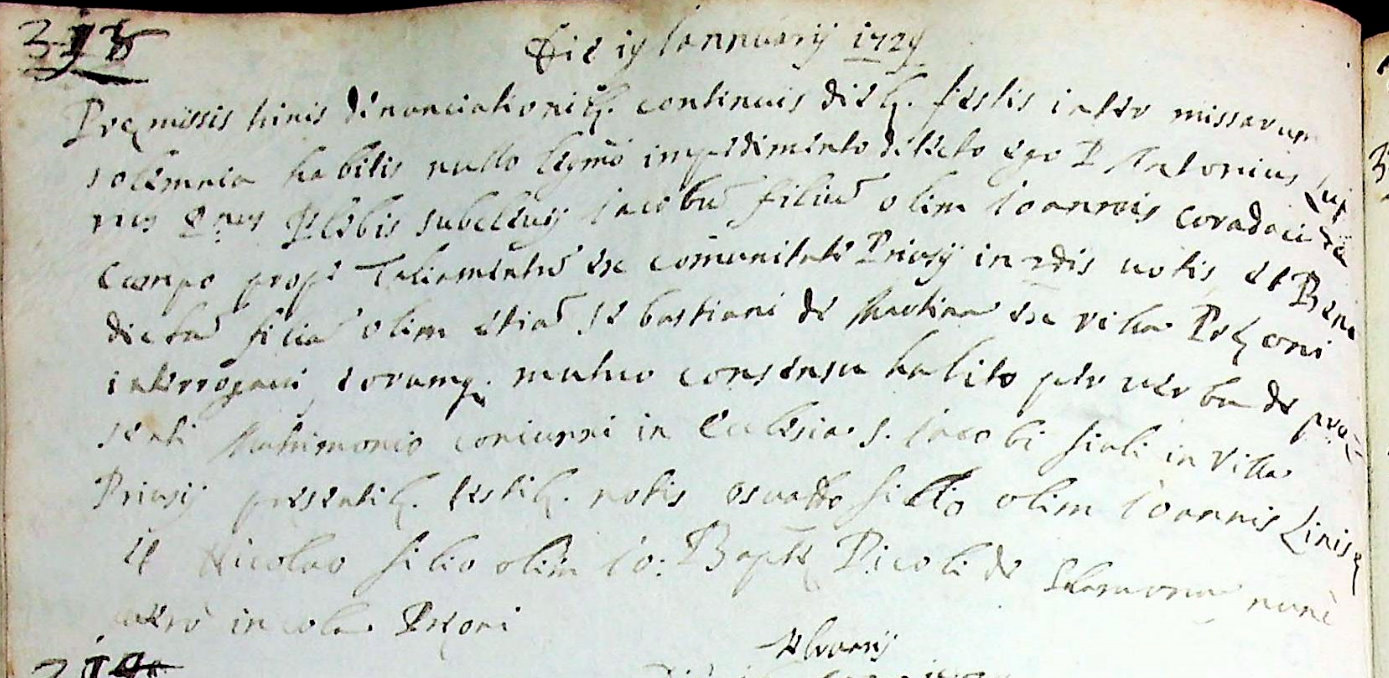 313
Die 19 Iannuarij 1729
Premissis trinis denunciationib. continuis dieb. festis inter missarum
solemnia habitis nullo legmo impedimento detecto ego P Antonius
nus Plebis subellusij Iacobū filiū olim Ioannis Coradaci de
Campo prope Taliamentū ex comunitate Priusij in rdis notis, et Bene
dictā filiā olim etiā Sebastiani de Martina ex villa Prezoni
interrogaui, eorumq. mutuo consensu habito per uerba de præ=
senti Matrimonio coniunxi in Ecclesia S. Iacobi siali in Villa
Priusij presentib. testib. notis Osualdo filio olim Ioannis
et Nicolao filio olim Io: Baptæ Picoli de nunc
uero incola Prezoni
314